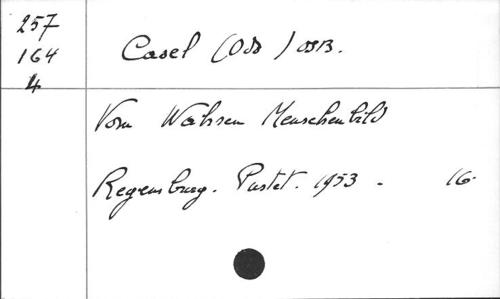 257
164
4
Casel (Odo) OSB.
Vom Wahren Menschenbild
Regensburg. Pustet. 1953. 16.